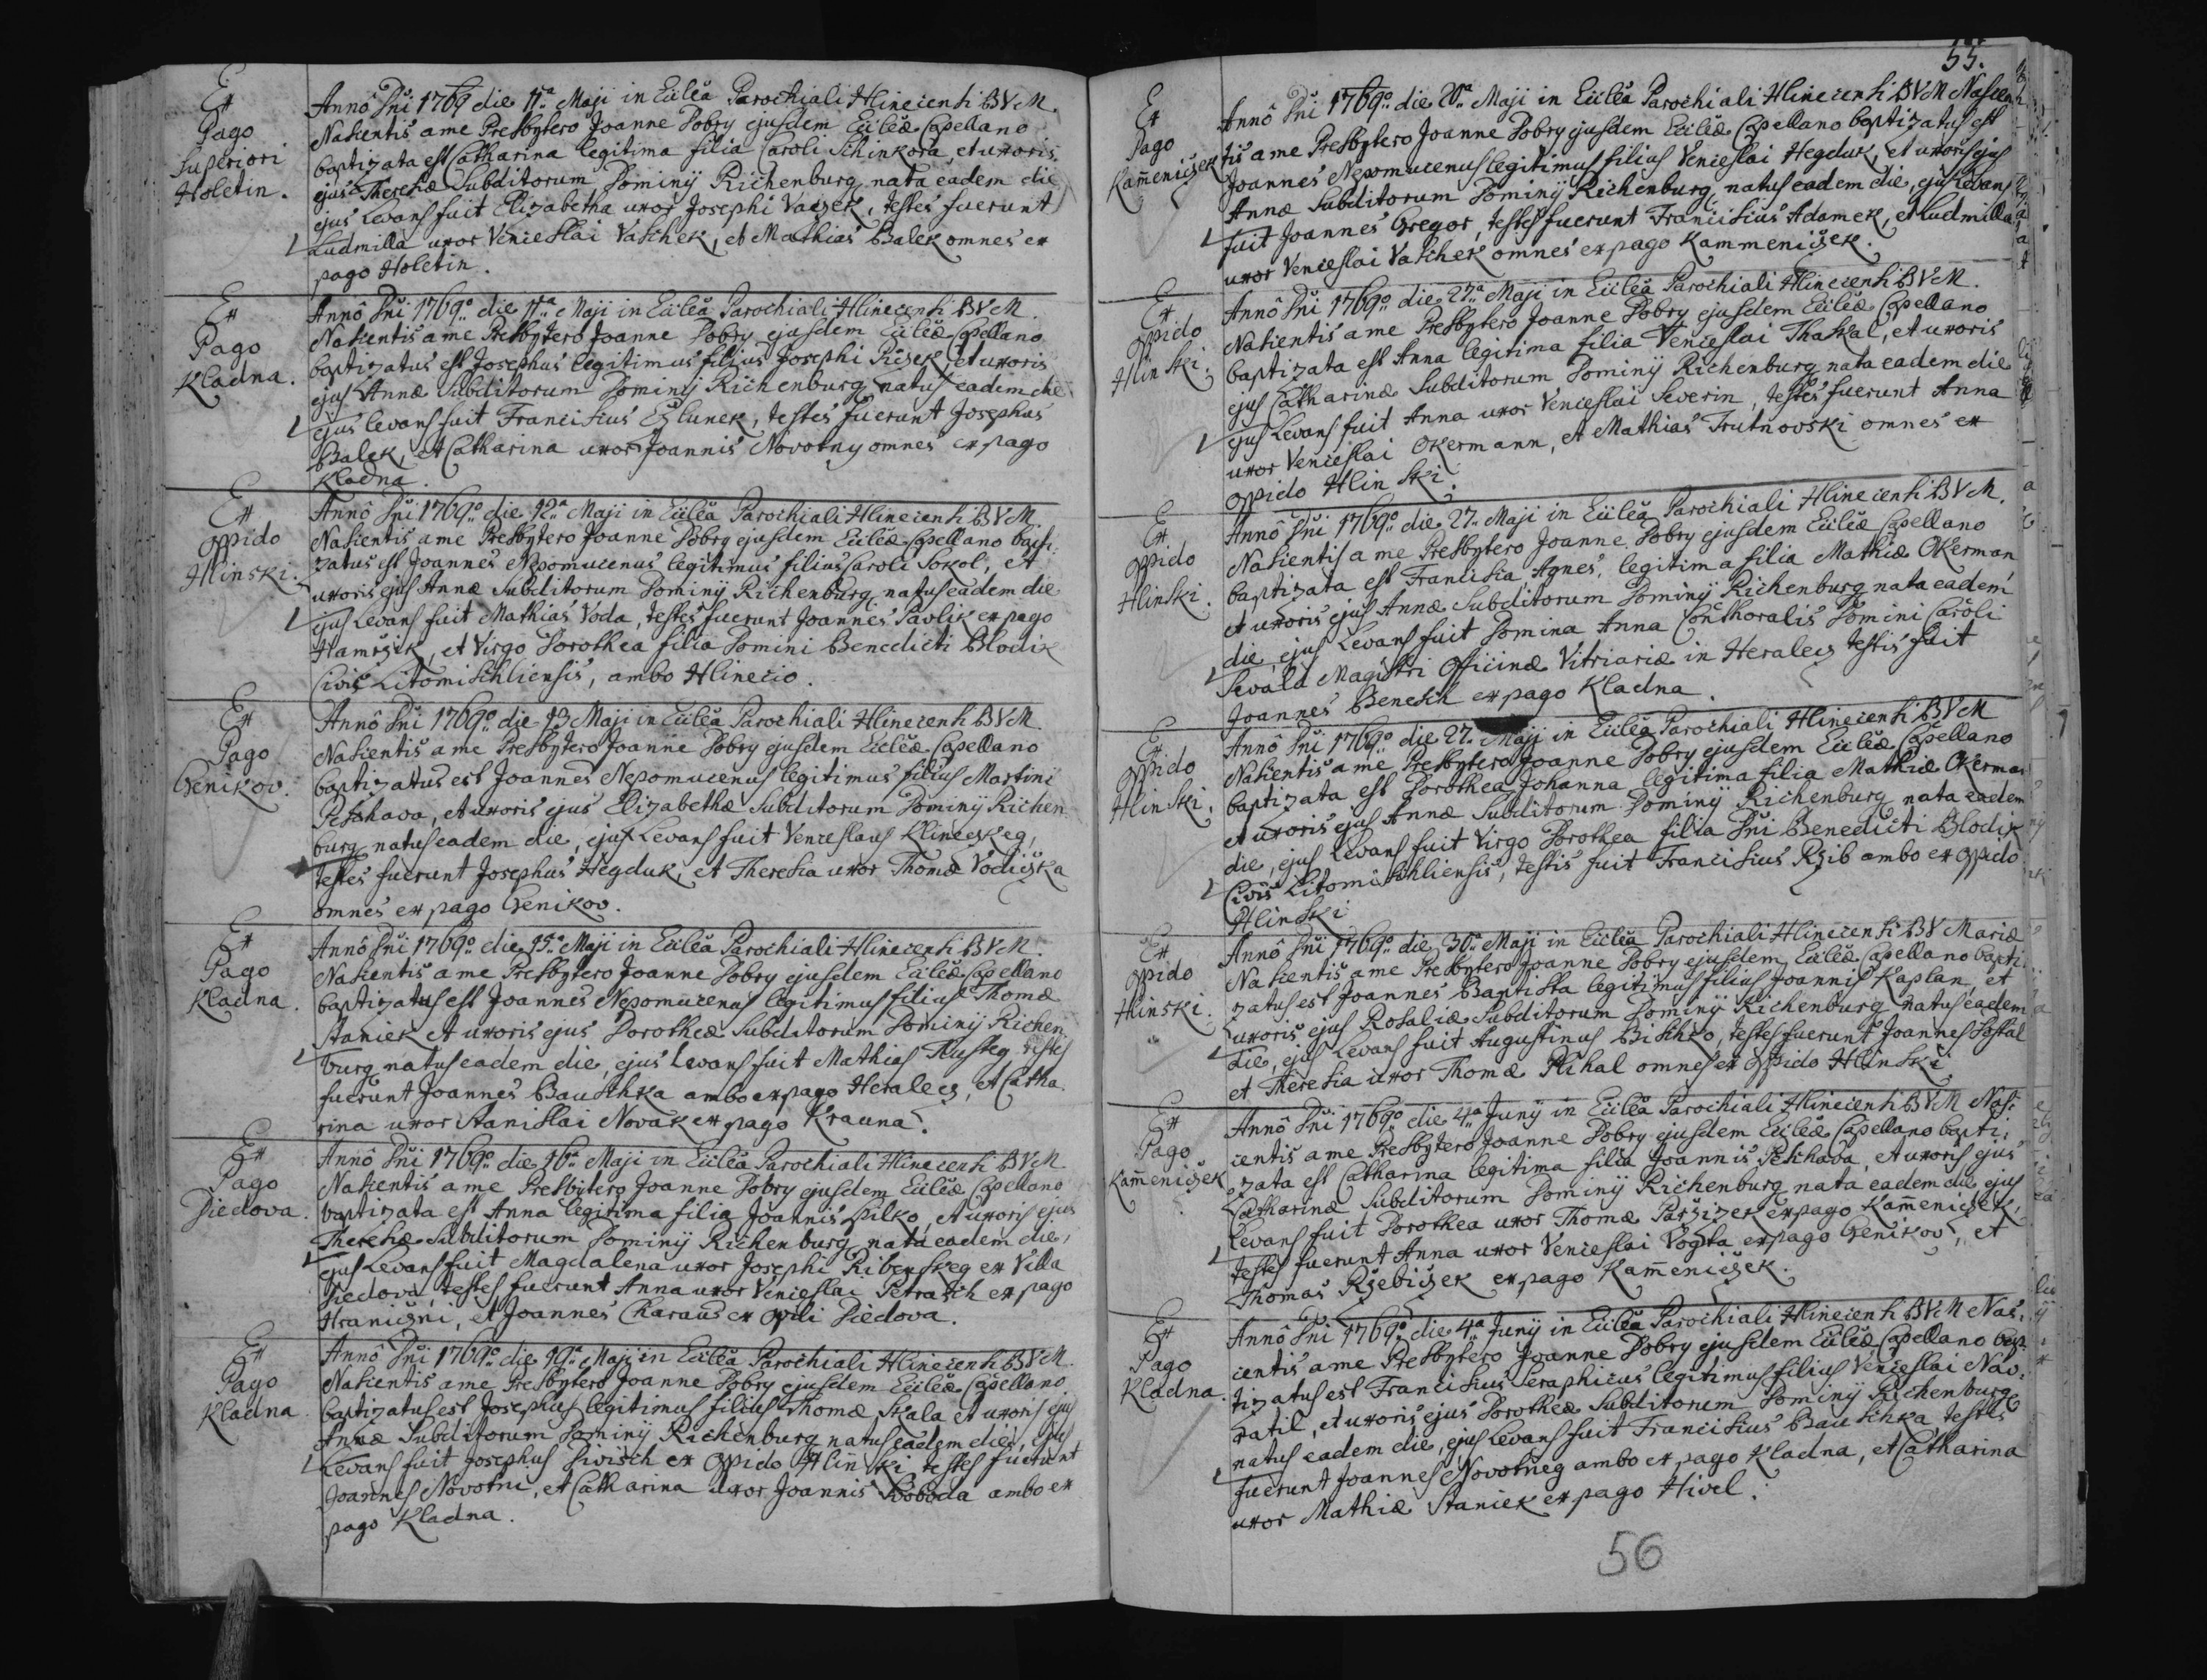 Ex
Pago
Superiori
Holetin.
Annô Dñi 1769 die 11ª Maji in Eccleâ Parochiali Hlinecensi B V M.
Nascentis a me Presbytero Joanne Dobry ejusdem Eccleæ Capellano
baptizata est Catharina legitima filia Caroli Schinkora, et uxoris
ejus Theresiæ Subditorum Dominÿ Richenburg nata eadem die
ejus Levans fuit Elizabetha uxor Josephi Vaczek, testes fuerunt
Ludmilla uxor Venceslai Vaschek, et Mathias Balek omnes ex
pago Holetin.
Ex
Pago
Kladna.
Annô Dñi 1769º die 11ª Maji in Eccleâ Parochiali Hlinecensi B V M.
Nascentis a me Presbytero Joanne Dobry ejusdem Eccleæ Capellano
baptizatus est Josephus legitimus filius Josephi Piczek et uxoris
ejus Annæ Subditorum Dominÿ Richenburg natus eadem die
ejus levans fuit Franciscus Czlunek, testes fuerunt Josephus
Balek, et Catharina uxor Joannis Novotny omnes ex pago
Kladna.
Ex
oppido
Hlinski.
Annô Dñi 1769º die 12ª Maji in Eccleâ Parochiali Hlinecensi B V M.
Nascentis a me Presbytero Joanne Dobry ejusdem Eccleæ Capellano bapti:
zatus est Joannes Nepomucenus legitimus filius Caroli Sokol, et
uxoris ejus Annæ Subditorum Dominÿ Richenburg natus eadem die
ejus Levans fuit Mathias Voda, testes fuerunt Joannes Pavlik ex pago
Hamrzik, et Virgo Dorothea filia Domini Benedicti Blodik
Civis Litomischliensis, ambo Hlinecio.
Ex
Pago
Genikov.
Annô Dñi 1769º die 13 Maji in Eccleâ Parochiali Hlinecensi B V M.
Nascentis a me Presbytero Joanne Dobry ejusdem Eccleæ Capellano
baptizatus est Joannes Nepomucenus legitimus filius Martini
Peschava, et uxoris ejus Elizabethæ Subditorum Dominÿ Richen
burg natus eadem die, ejus Levans fuit Venceslaus Klineckeg,
testes fuerunt Josephus Hegduk, et Theresia uxor Thomæ Vodiczka
omnes ex pago Genikov.
Ex
Pago
Kladna.
Annô Dñi 1769º die 15ª Maji in Eccleâ Parochiali Hlinecensi B V M.
Nascentis a me Presbytero Joanne Dobry ejusdem Eccleæ Capellano
baptizatus est Joannes Nepomucenus legitimus filius Thomæ
Staniek et uxoris ejus Dorotheæ Subditorum Dominÿ Richen
burg natus eadem die, ejus Levans fuit Mathias Tlusteg testes
fuerunt Joannes Bauschka ambo ex pago Heralecz, et Catha
rina uxor Stanislai Novak ex pago Krauna.
Ex
Pago
Diedova.
Annô Dñi 1769º die 16ª Maji in Eccleâ Parochiali Hlinecensi B V M.
Nascentis a me Presbytero Joanne Dobry ejusdem Eccleæ Capellano
baptizata est Anna legitima filia Joannis Pilko, et uxoris ejus
Theresiæ Subditorum Dominÿ Richenburg nata eadem die,
ejus Levans fuit Magdalena uxor Josephi Ribenskeg ex Villa
Diedova testes fuerunt Anna uxor Venceslai Petrasch ex pago
Hraniczni, et Joannes Charaus ex Diedova.
Ex
Pago
Kladna
Annô Dñi 1769º die 19ª Maji in Eccleâ Parochiali Hlinecensi B V M.
Nascentis a me Presbytero Joanne Dobry ejusdem Eccleæ Capellano
baptizatus est Josephus legitimus filius Thomæ Skala et uxoris ejus
Annæ Subditorum Dominÿ Richenburg natus eadem die, ejus
Levans fuit Josephus Divisch ex Oppido Hlinski testes fuerunt
Joannes Novotni, et Catharina uxor Joannis Svoboda ambo ex
pago Kladna.
55.
Ex
Pago
Kam̄eniczek
Annô Dñi 1769º die 20ª Maji in Eccleâ Parochiali Hlinecensi B V M Nascen
tis a me Presbytero Joanne Dobry ejusdem Eccleæ Capellano baptizatus est
Joannes Nepomucenus legitimus filius Venceslai Hegduk, et uxoris ejus
Annæ Subditorum Dominÿ Richenburg, natus eadem die, ejus Levans
fuit Joannes Gregor, testes fuerunt Franciscus Adamek, et Ludmilla
uxor Venceslai Vaschek omnes ex pago Kammeniczek.
Ex
oppido
Hlinski.
Annô Dñi 1769º die 27ª Maji in Eccleâ Parochiali Hlinecensi B V M.
Nascentis a me Presbytero Joanne Dobry ejusdem Eccleæ Capellano
baptizata est Anna legitima filia Venceslai Thaskal, et uxoris
ejus Catharinæ Subditorum Dominÿ Richenburg nata eadem die
ejus Levans fuit Anna uxor Venceslai Severin, testes fuerunt Anna
uxor Venceslai Okermann, et Mathias Trutnovski omnes ex
oppido Hlinski.
Ex
oppido
Hlinski.
Annô Dñi 1769º die 27. Maji in Eccleâ Parochiali Hlinecensi B V M.
Nascentis a me Presbytero Joanne Dobry ejusdem Eccleæ Capellano
baptizata est Francisca Agnes, legitima filia Mathiæ Okerman
et uxoris ejus Annæ Subditorum Dominÿ Richenburg nata eadem
die, ejus Levans fuit Domina Anna Conthoralis Domini Caroli
Sevala Magistri Officinæ Vitriariæ in Heralecz testis fuit
Joannes Benesch ex pago Kladna.
Ex
oppido
Hlinski.
Annô Dñi 1769º die 27. Maji in Eccleâ Parochiali Hlinecensi B V M
Nascentis a me Presbytero Joanne Dobry ejusdem Eccleæ Capellano
baptizata est Dorothea Johanna legitima filia Mathiæ Okerman
et uxoris ejus Annæ Subditorum Dominÿ Richenburg nata eadem
die, ejus Levans fuit Virgo Dorothea filia Dñi Benedicti Blodik
Civis Litomischliensis, testis fuit Franciscus Rzib ambo ex oppido
Hlinski
Ex
oppido
Hlinski.
Annô Dñi 1769º die 30ª Maji in Eccleâ Parochiali Hlinecensi B V Mariæ
Nascentis a me Presbytero Joanne Dobry ejusdem Eccleæ Capellano bapti
zatus est Joannes Baptista legitimus filius Joannis Kaplan, et
uxoris ejus Rosaliæ Subditorum Dominÿ Richenburg natus eadem
die, ejus Levans fuit Augustinus Bischko, testes fuerunt Joannes Dostal
et Theresia uxor Thomæ Rihal omnes ex oppido Hlinski.
Ex
Pago
Kam̄eniczek
Annô Dñi 1769º die 4ª Junÿ in Eccleâ Parochiali Hlinecensi B V M Nas:
centis a me Presbytero Joanne Dobry ejusdem Eccleæ Capellano bapti:
zata est Catharina legitima filia Joannis Peschava, et uxoris ejus
Catharinæ Subditorum Dominÿ Richenburg nata eadem die ejus
Levans fuit Dorothea uxor Thomæ Parzizek ex pago Kam̄eniczek,
testes fuerunt Anna uxor Venceslai Vogta ex pago Genikov, et
Thomas Rzebiczek ex pago Kam̄eniczek.
Ex
Pago
Kladna.
Annô Dñi 1769º die 4ª Junÿ in Eccleâ Parochiali Hlinecensi B V M Nas:
centis a me Presbytero Joanne Dobry ejusdem Eccleæ Capellano bap:
tizatus est Franciscus Seraphicus legitimus filius Venceslai Nav:
ratil, et uxoris ejus Dorotheæ Subditorum Dominÿ Richenburg
natus eadem die, ejus Levans fuit Franciscus Bauschka testes
fuerunt Joannes Novotneg ambo ex pago Kladna, et Catharina
uxor Mathiæ Staniek ex pago Hivel.
56